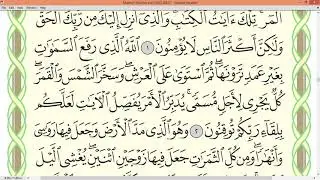 الٓمٓر تِلۡكَ ءَايَٰتُ ٱلۡكِتَٰبِۗ وَٱلَّذِيٓ أُنزِلَ إِلَيۡكَ مِن رَّبِّكَ ٱلۡحَقُّ
وَلَٰكِنَّ أَكۡثَرَ ٱلنَّاسِ لَا يُؤۡمِنُونَ ١ ٱللَّهُ ٱلَّذِي رَفَعَ ٱلسَّمَٰوَٰتِ
بِغَيۡرِ عَمَدٖ تَرَوۡنَهَاۖ ثُمَّ ٱسۡتَوَىٰ عَلَى ٱلۡعَرۡشِۖ وَسَخَّرَ ٱلشَّمۡسَ وَٱلۡقَمَرَۖ
كُلّٞ يَجۡرِي لِأَجَلٖ مُّسَمّٗىۚ يُدَبِّرُ ٱلۡأَمۡرَ يُفَصِّلُ ٱلۡأٓيَٰتِ لَعَلَّكُم
بِلِقَآءِ رَبِّكُمۡ تُوقِنُونَ ٢ وَهُوَ ٱلَّذِي مَدَّ ٱلۡأَرۡضَ وَجَعَلَ فِيهَا رَوَٰسِيَ
وَأَنۡهَٰرٗاۖ وَمِن كُلِّ ٱلثَّمَرَٰتِ جَعَلَ فِيهَا زَوۡجَيۡنِ ٱثۡنَيۡنِۖ يُغۡشِي ٱلَّيۡلَ